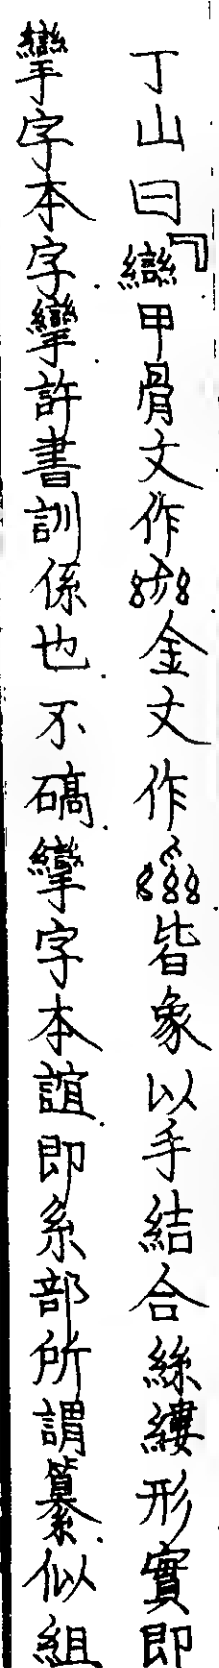 丁山曰『䜌甲骨文作金文作皆象以手結合絲縷形實即
攣字本字攣許書訓係也不碻攣字本誼即糸部所謂纂似組